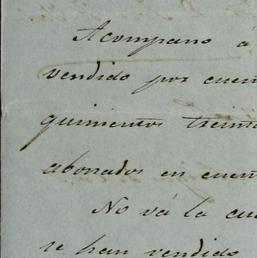 Acompano á
vendido por cuen
quinientos treint
abonados en cuen
No vá la cu
se han vendido